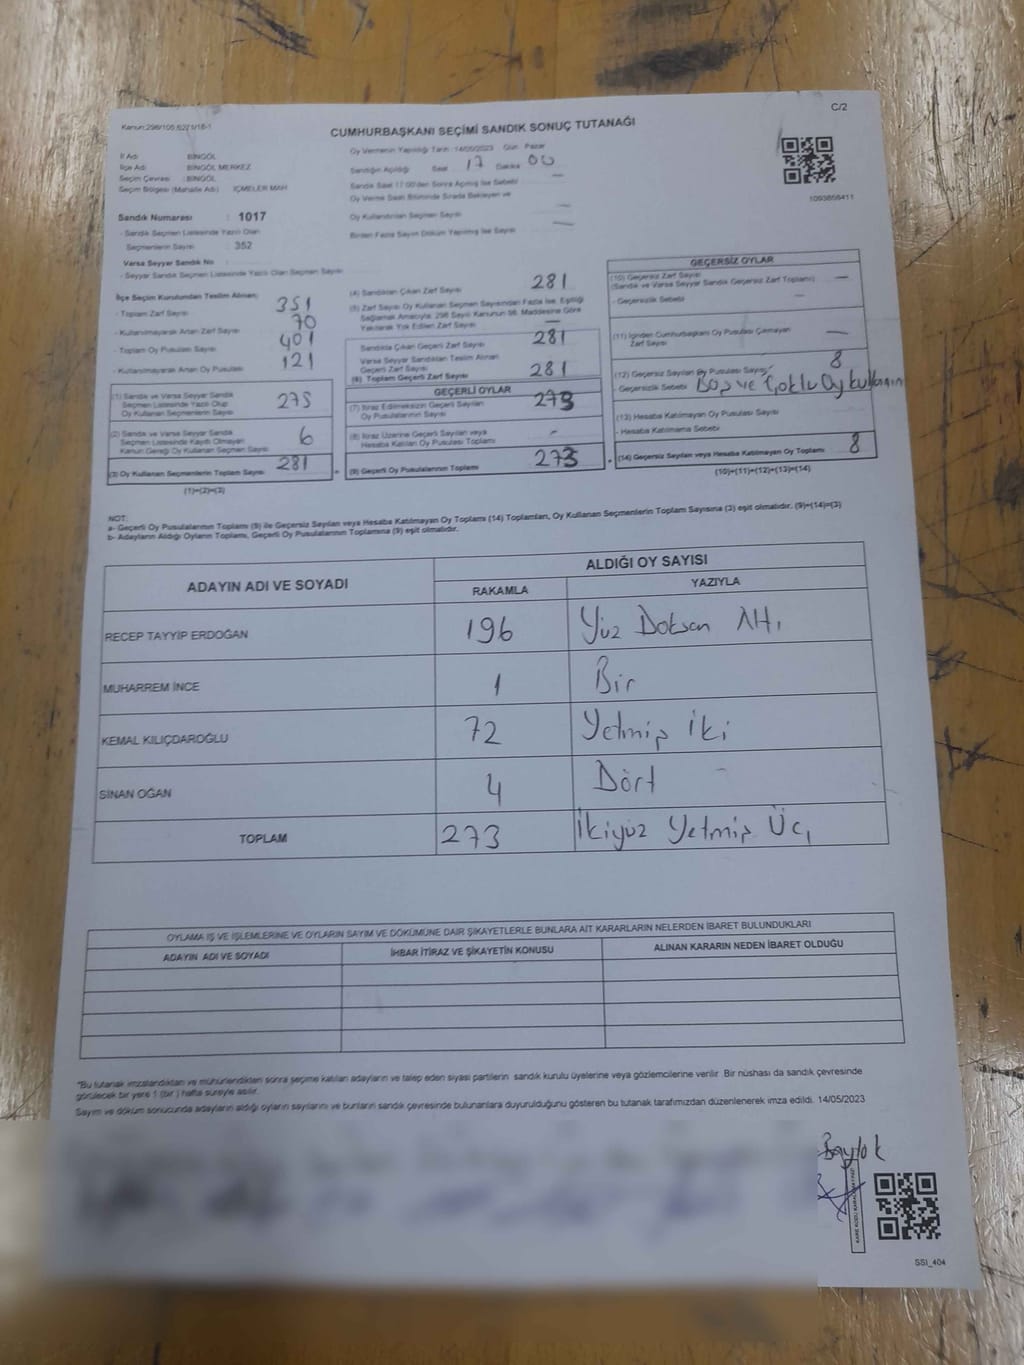 C/2
Kanun:298/105,6271/18-1
CUMHURBAŞKANI SEÇİMİ SANDIK SONUÇ TUTANAĞI
İl Adı : BİNGÖL
İlçe Adı : BİNGÖL MERKEZ
Seçim Çevresi : BİNGÖL
Seçim Bölgesi (Mahalle Adı) : İÇMELER MAH
Oy Vermenin Yapıldığı Tarih : 14/05/2023 Gün : Pazar
Sandığın Açıldığı Saat 17 Dakika 00
Sandık Saat 17:00'den Sonra Açılmış İse Sebebi
Oy Verme Saati Bitiminde Sırada Bekleyen ve
Oy Kullandırılan Seçmen Sayısı
Birden Fazla Sayım Döküm Yapılmış İse Sayısı
1093858411
Sandık Numarası : 1017
- Sandık Seçmen Listesinde Yazılı Olan
Seçmenlerin Sayısı : 352
Varsa Seyyar Sandık No :
- Seyyar Sandık Seçmen Listesinde Yazılı Olan Seçmen Sayısı
İlçe Seçim Kurulundan Teslim Alınan;
- Toplam Zarf Sayısı 351
- Kullanılmayarak Artan Zarf Sayısı 70
- Toplam Oy Pusulası Sayısı 401
- Kullanılmayarak Artan Oy Pusulası 121
(1) Sandık ve Varsa Seyyar Sandık
Seçmen Listesinde Yazılı Olup
Oy Kullanan Seçmenlerin Sayısı 275
(2) Sandık ve Varsa Seyyar Sandık
Seçmen Listesinde Kayıtlı Olmayan
Kanun Gereği Oy Kullanan Seçmen Sayısı 6
(3) Oy Kullanan Seçmenlerin Toplam Sayısı 281
(1)+(2)=(3)
(4) Sandıktan Çıkan Zarf Sayısı 281
(5) Zarf Sayısı Oy Kullanan Seçmen Sayısından Fazla İse, Eşitliği
Sağlamak Amacıyla, 298 Sayılı Kanunun 98. Maddesine Göre
Yakılarak Yok Edilen Zarf Sayısı
Sandıkta Çıkan Geçerli Zarf Sayısı 281
Varsa Seyyar Sandıktan Teslim Alınan
Geçerli Zarf Sayısı
(6) Toplam Geçerli Zarf Sayısı 281
GEÇERLİ OYLAR
(7) İtiraz Edilmeksizin Geçerli Sayılan
Oy Pusulalarının Sayısı 273
(8) İtiraz Üzerine Geçerli Sayılan veya
Hesaba Katılan Oy Pusulası Toplamı -
(9) Geçerli Oy Pusulalarının Toplamı 273
GEÇERSİZ OYLAR
(10) Geçersiz Zarf Sayısı
(Sandık ve Varsa Seyyar Sandık Geçersiz Zarf Toplamı) —
- Geçersizlik Sebebi —
(11) İçinden Cumhurbaşkanı Oy Pusulası Çıkmayan
Zarf Sayısı —
(12) Geçersiz Sayılan Oy Pusulası Sayısı 8
- Geçersizlik Sebebi Boş ve Çoklu Oy kullanım
(13) Hesaba Katılmayan Oy Pusulası Sayısı
- Hesaba Katılmama Sebebi
(14) Geçersiz Sayılan veya Hesaba Katılmayan Oy Toplamı 8
(10)+(11)+(12)+(13)=(14)
NOT:
a- Geçerli Oy Pusulalarının Toplamı (9) ile Geçersiz Sayılan veya Hesaba Katılmayan Oy Toplamı (14) Toplamları, Oy Kullanan Seçmenlerin Toplam Sayısına (3) eşit olmalıdır. (9)+(14)=(3)
b- Adayların Aldığı Oyların Toplamı, Geçerli Oy Pusulalarının Toplamına (9) eşit olmalıdır.
ADAYIN ADI VE SOYADI ALDIĞI OY SAYISI
RAKAMLA YAZIYLA
RECEP TAYYİP ERDOĞAN 196 Yüz Doksan Altı
MUHARREM İNCE 1 Bir
KEMAL KILIÇDAROĞLU 72 Yetmiş İki
SİNAN OĞAN 4 Dört
TOPLAM 273 İkiyüz Yetmiş Üç
OYLAMA İŞ VE İŞLEMLERİNE VE OYLARIN SAYIM VE DÖKÜMÜNE DAİR ŞİKAYETLERLE BUNLARA AİT KARARLARIN NELERDEN İBARET BULUNDUKLARI
ADAYIN ADI VE SOYADI İHBAR İTİRAZ VE ŞİKAYETİN KONUSU ALINAN KARARIN NEDEN İBARET OLDUĞU
"Bu tutanak imzalandıktan ve mühürlendikten sonra seçime katılan adayların ve talep eden siyasi partilerin sandık kurulu üyelerine veya gözlemcilerine verilir. Bir nüshası da sandık çevresinde
görülecek bir yere 1 (bir ) hafta süreyle asılır.
Sayım ve döküm sonucunda adayların aldığı oyların sayılarını ve bunların sandık çevresinde bulunanlara duyurulduğunu gösteren bu tutanak tarafımızdan düzenlenerek imza edildi. 14/05/2023
SSI_404